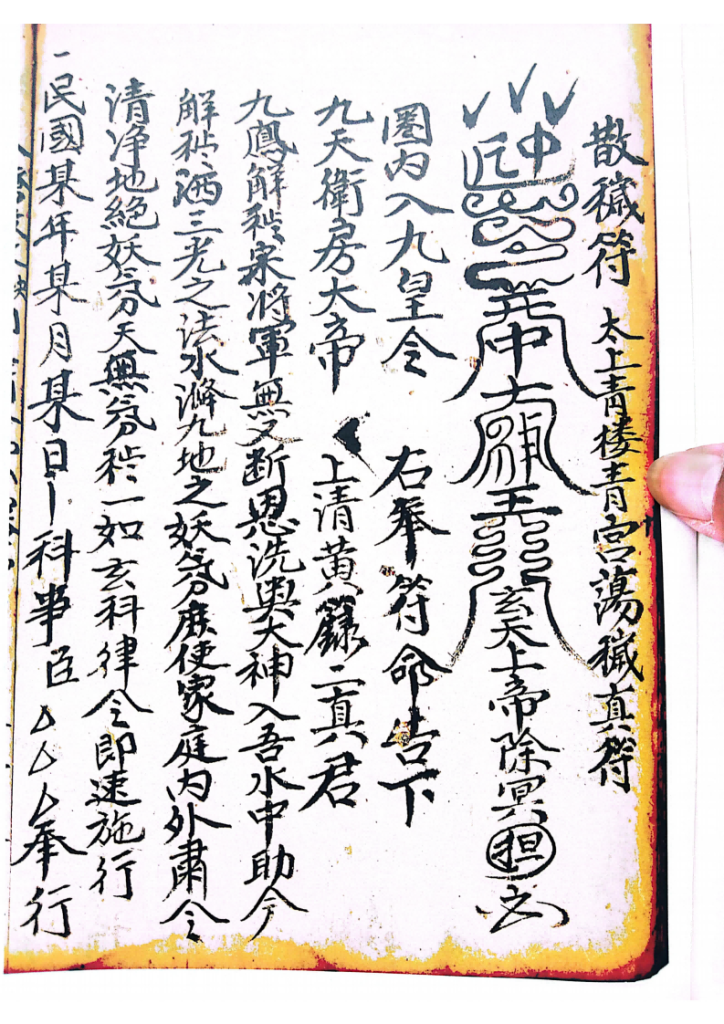 散穢符 太上青楼青宫蕩穢真符
玄天上帝除冥担
圈内入九皇令 右奉符命告下
九天衛房大帝 上清黄籙二真君
九鳳解秽宋將軍無义断恩洗輿大神入吾水中助今
解秽洒三光之法水滌九地之妖氛庶使家庭内外肅令
清净地絶妖氛天無氛秽一如玄科律令即速施行
民國某年某月某日科事臣 奉行